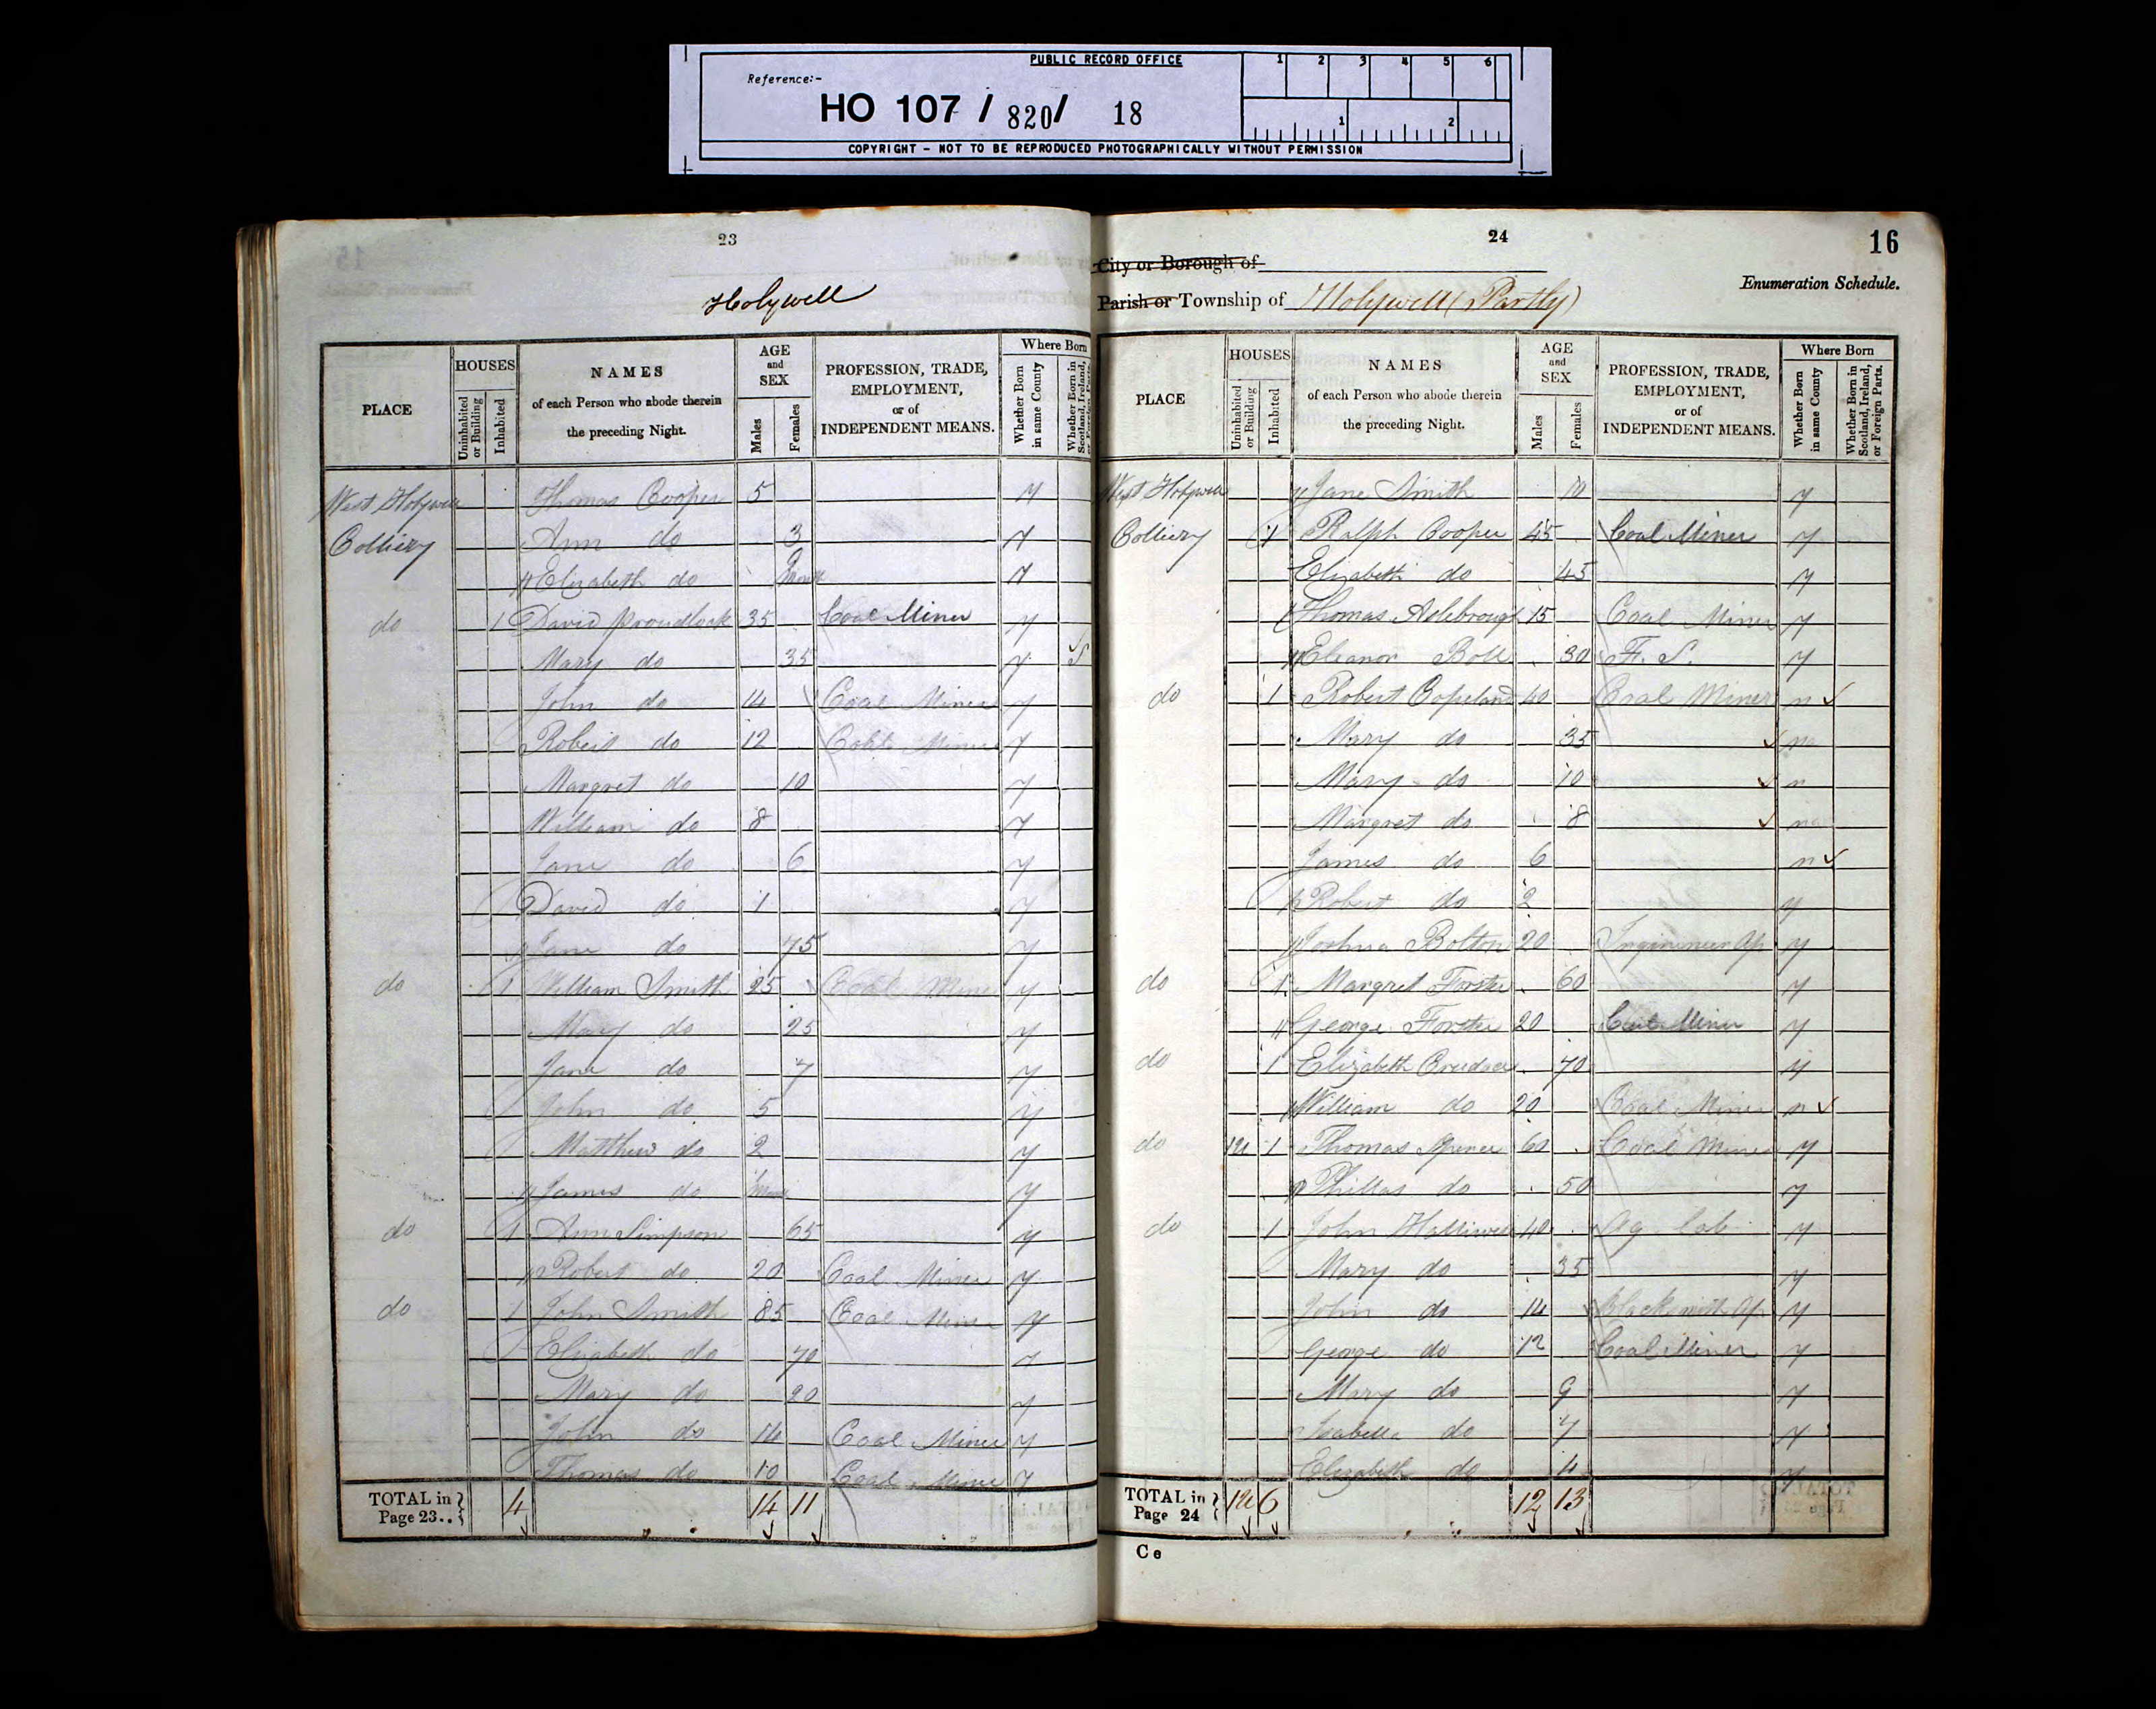 PUBLIC RECORD OFFICE
Reference:-
HO 107 / 820 / 18
1 2 3 4 5 6
1 2
COPYRIGHT - NOT TO BE REPRODUCED PHOTOGRAPHICALLY WITHOUT PERMISSION
23
Holywell
PLACE
HOUSES
Uninhabited or Building
Inhabited
NAMES
of each Person who abode therein
the preceding Night.
AGE
and
SEX
Males
Females
PROFESSION, TRADE,
EMPLOYMENT,
or of
INDEPENDENT MEANS.
Where Born
Whether Born in same County
Whether Born in Scotland, Ireland,
West Holywell Thomas Cooper 5 y
Colliery Ann do 3 y
Elizabeth do y
do 1 David Proudlock 35 Coal Miner y
Mary do 35 S
John do 14 Coal Miner y
Robert do 12 Coal Miner y
Margret do 10 y
William do 8 y
Jane do 6 y
David do 1 y
Jane do 75 y
do 1 William Smith 25 Coal Miner y
Mary do 25 y
Jane do 7 y
John do 5 y
Matthew do 2 y
James do y
do 1 Ann Simpson 65 y
Robert do 20 Coal Miner y
do 1 John Smith 85 Coal Miner y
Elizabeth do 70 y
Mary do 20 y
John do 14 Coal Miner y
Thomas do 10 Coal Miner y
TOTAL in Page 23.. 4 14 11
24
16
City or Borough of
Enumeration Schedule.
Parish or Township of Holywell (Partly)
PLACE
HOUSES
Uninhabited or Building
Inhabited
NAMES
of each Person who abode therein
the preceding Night.
AGE
and
SEX
Males
Females
PROFESSION, TRADE,
EMPLOYMENT,
or of
INDEPENDENT MEANS.
Where Born
Whether Born in same County
Whether Born in Scotland, Ireland, or Foreign Parts.
West Holywell Jane Smith y
Colliery 1 Ralph Cooper 45 Coal Miner y
Elizabeth do 45 y
Thomas 15 Coal Miner y
Eleanor 30 F. S. y
do 1 Robert Copeland 40 Coal Miner n
Mary do 35 n
Mary do 10 n
Margret do 8 n
James do 6 n
Robert do 2 y
Joshua Bolton 20 Ap y
do 1 Margret Forster 60 y
George Forster 20 Coal Miner y
do 1 Elizabeth 70 y
William do 20 Coal Miner n
do 1 Thomas Spence 60 Coal Miner y
Phillas do 50 y
do 1 John Halliwell 40 Ag lab y
Mary do 35 y
John do 14 Blacksmith Ap y
George do 12 Coal Miner y
Mary do 9 y
Isabella do 7 y
Elizabeth do 4 y
TOTAL in Page 24 6 12 13
C e